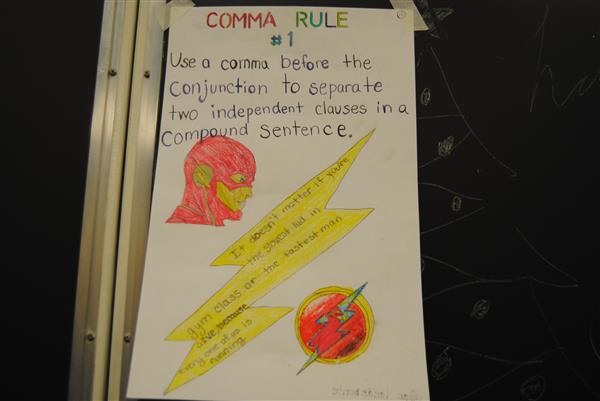 COMMA RULE
#1
Use a comma before the
Conjunction to separate
two independent clauses in a
Compound Sentence.
It doesn't matter if you're
the slowest kid in
gym class or the fastest man
alive, because
every one of us is
running.